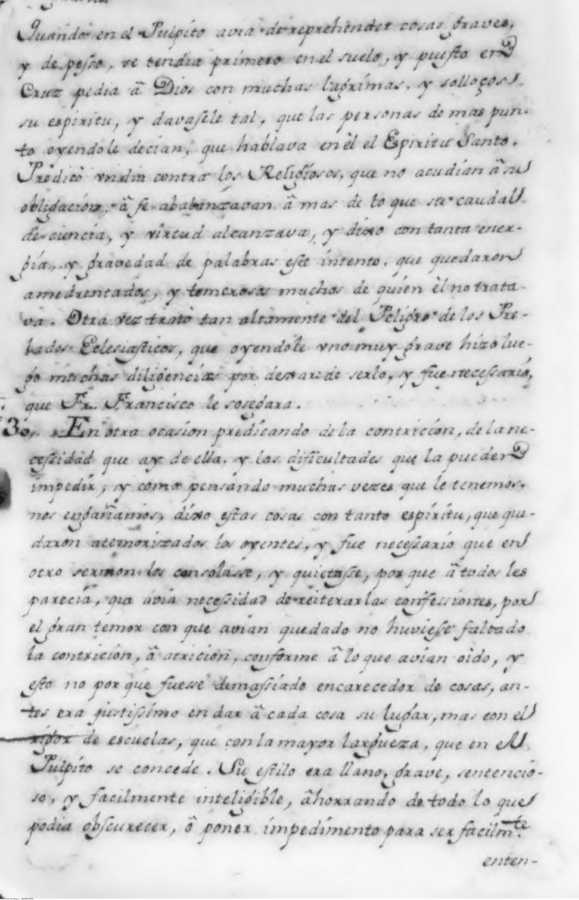 Quando en el Pulpito avia de reprehender cosas graves,
y de pesso, se tendia primero en el suelo, y puesto en
Cruz pedia â Dios con muchas lagrimas, y solloços
su espiritu, y davasele tal, que las personas de mas pun-
to oyendole decian, que hablava en êl el Espiritu Santo.
Predicò un dia contra los Religiosos, que no acudian â su
obligacion, â se abalanzavan â mas de lo que su caudal
de ciencia, y virtud alcanzava, y dixo con tanta ener-
gia, y gravedad de palabras este intento, que quedaron
amedrentados, y temerosos muchos de quien êl no trata-
va. Otra vez tratò tan altamente del Peligro de los Pre-
lados Eclesiasticos, que oyendole uno muy grave hizo lue-
go muchas diligencias por dexar de serlo, y fue necessario,
que Fr. Francisco le sosegara.
30. En otra ocasion predicando de la contricion, de la ne-
cessidad que ay de ella, y las dificultades que la pueden
impedir, y como pensando muchas vezes que le tenemos,
nos engañamos, dixo estas cosas con tanto espiritu, que que-
daron atemorizados los oyentes, y fue necessario que en
otro sermon los consolasse, y quietasse, por que â todos les
parecia, que avia necessidad de reiterar las confessiones, por
el gran temor con que avian quedado no huviese faltado
la contricion, â atricion, conforme â lo que avian oido, y
esto no por que fuesse demassiado encarecedor de cosas, an-
tes era justissimo en dar â cada cosa su lugar, mas con el
rigor de escuelas, que con la mayor largueza, que en el
Pulpito se concede. Su estilo era llano, grave, sentencio-
so, y facilmente inteligible, âhorrando de todo lo que
podia obscurecer, ô poner impedimento para ser facilmte
enten-